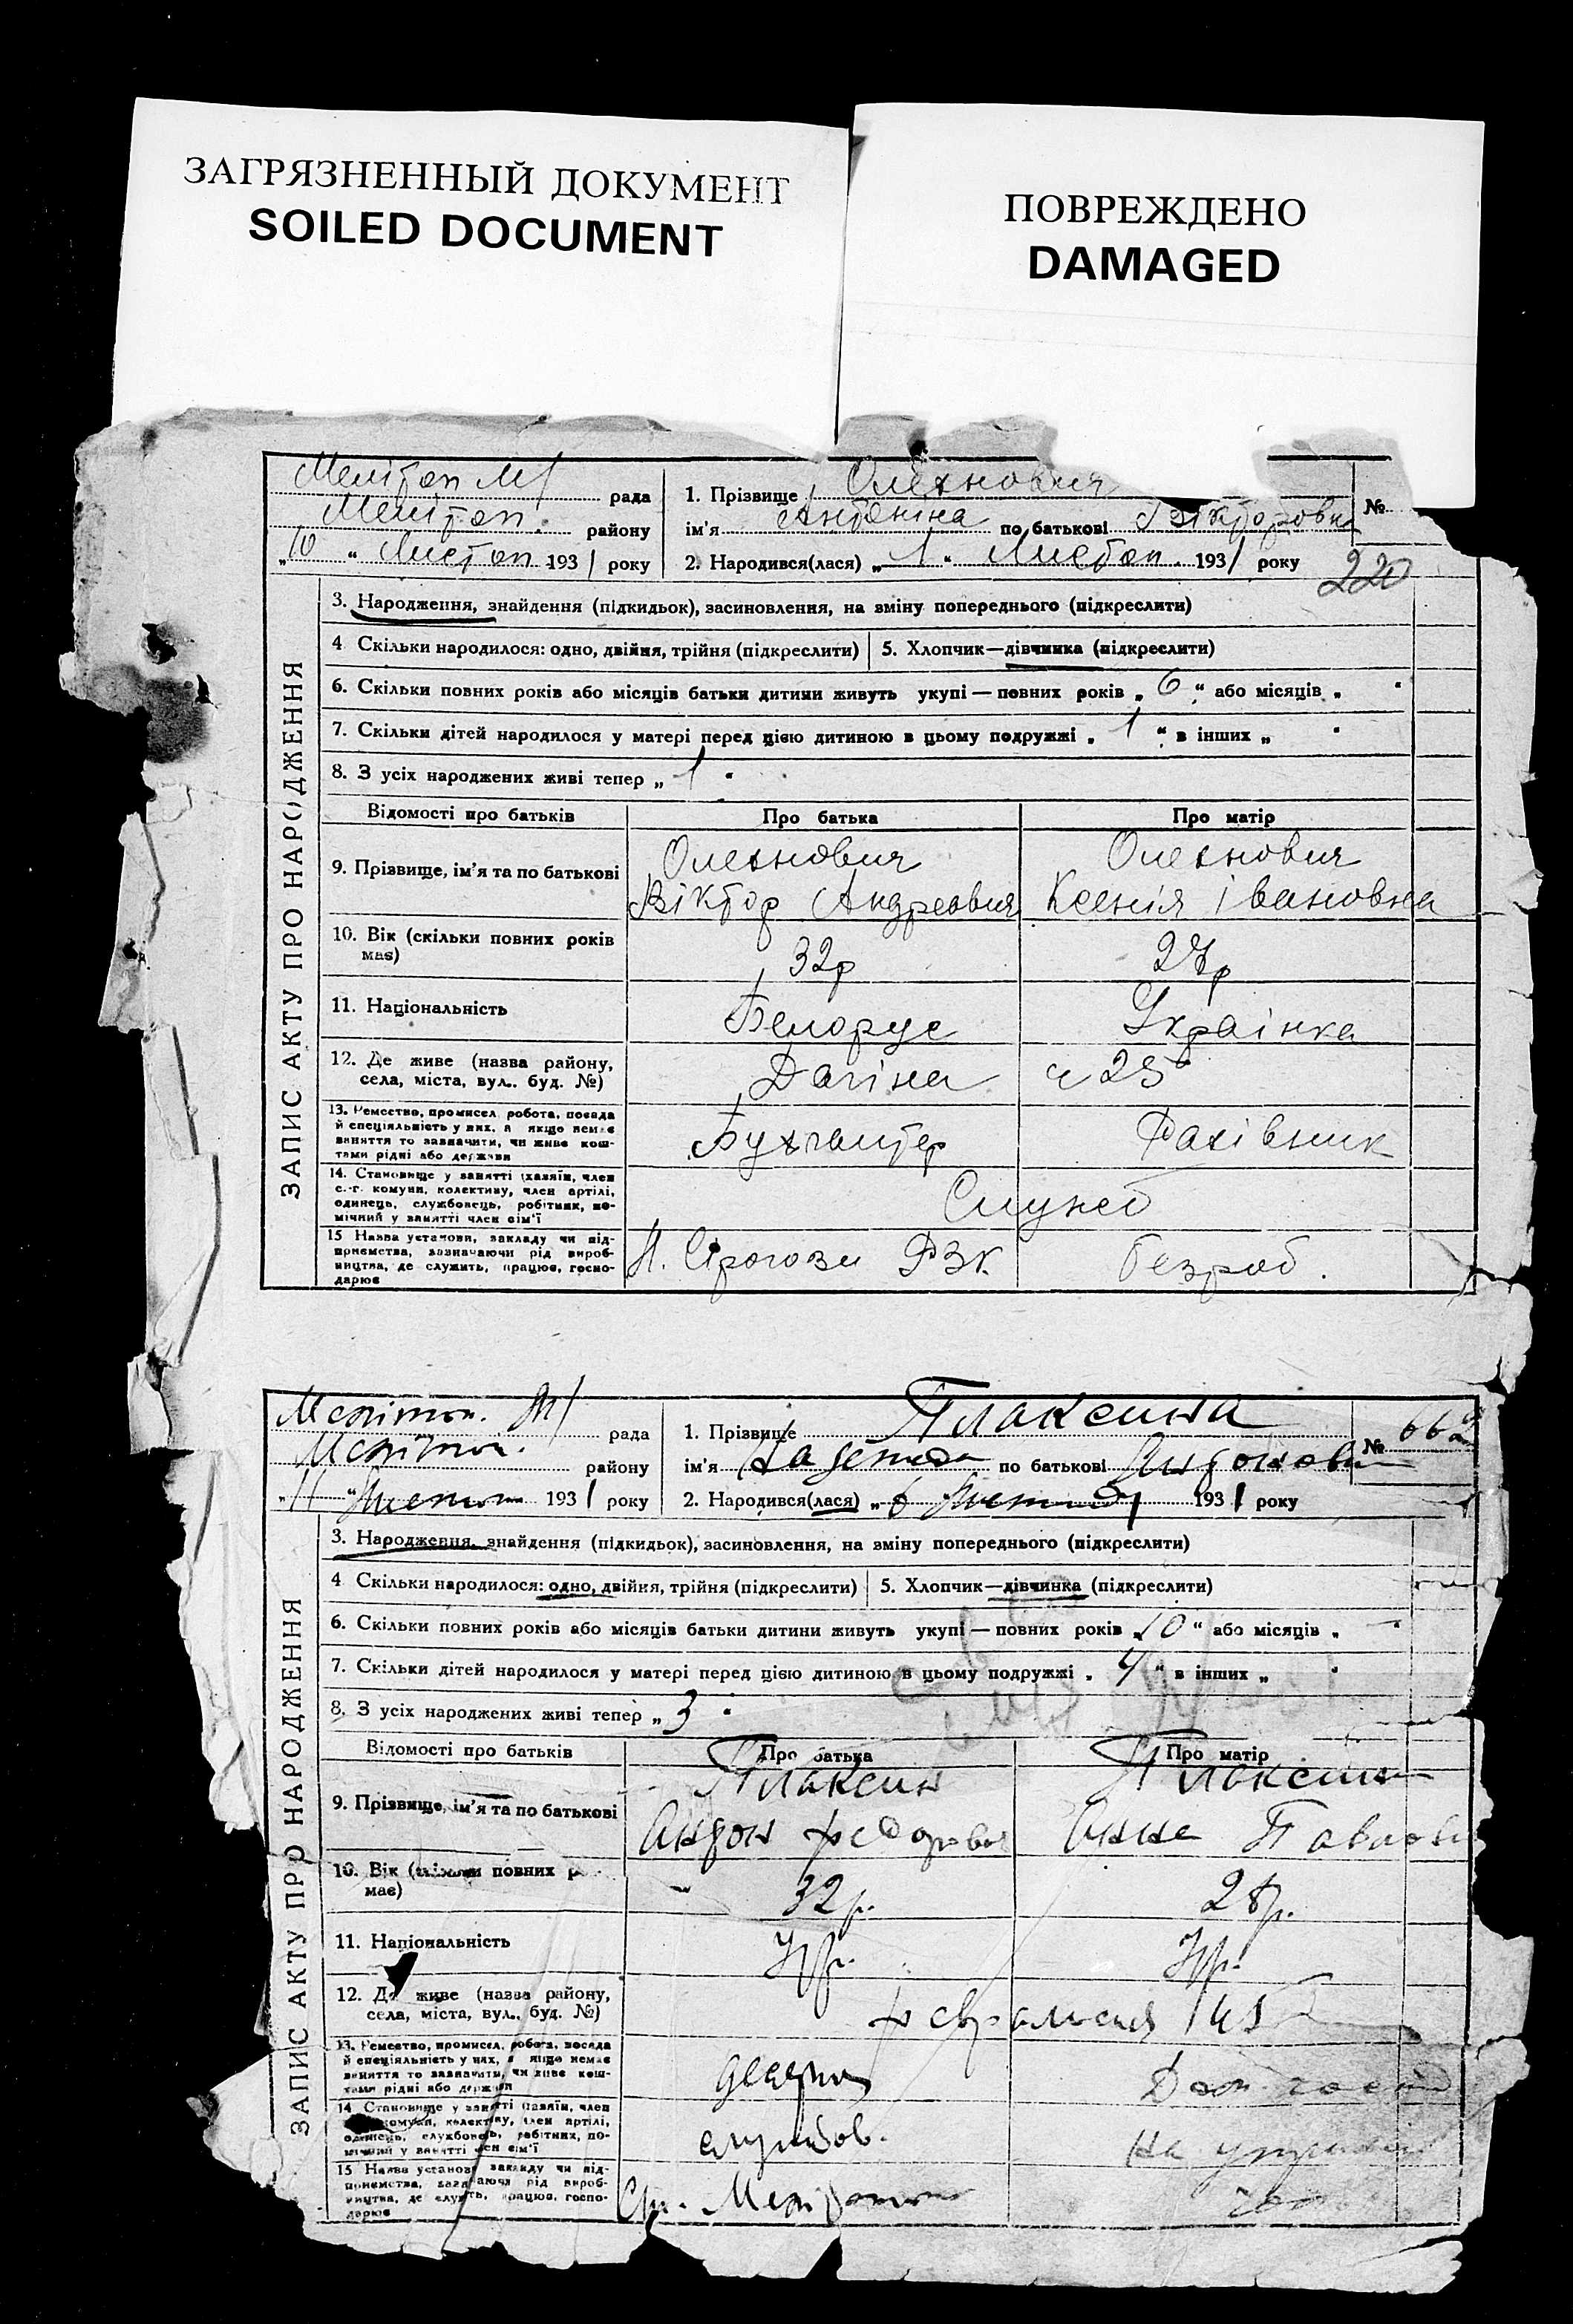 ЗАГРЯЗНЕННЫЙ ДОКУМЕНТ
SOILED DOCUMENT
ПОВРЕЖДЕНО
DAMAGED
ЗАПИС АКТУ ПРО НАРОДЖЕННЯ
Меліт оп М/ рада
Меліто п. району
„10“ Листоп 1931 року
1. Прізвище Олехнович
ім'я Антоніна по батькові Вікторовна
2. Народився(лася) „1“ Листоп. 1931 року
№
220
3. Народження, знайдення (підкидьок), засиновлення, на зміну попереднього (підкреслити)
4 Скільки народилося: одно, двійня, трійня (підкреслити) 5. Хлопчик—дівчинка (підкреслити)
6. Скільки повних років або місяців батьки дитини живуть укупі — повних років „6“ або місяців „ “
7. Скільки дітей народилося у матері перед цією дитиною в цьому подружжі „1“ в інших „ “
8. З усіх народжених живі тепер „1“
Відомості про батьків Про батька Про матір
9. Прізвище, ім'я та по батькові Олехнович Олехнович
Віктор Андреович Ксенія Івановна
10. Вік (скільки повних років має) 32р 27р
11. Національність Белорус Українка
12. Де живе (назва району, села, міста, вул., буд. №) 25
13. Ремество, промисел, робота, посада й спеціяльність у них, а якщо немає заняття то зазначити, чи живе коштами рідні або держави Бухгалтер Фахівник
14. Становище у занятті (хазяїн, член с.-г. комуни, колективу, член артілі, одинець, службовець, робітник, помічний у занятті член сім'ї Служб
15 Назва установи, закладу чи підприємства, зазначаючи рід виробництва, де служить, працює, господарює Н. Сірогози РЗК безроб.
ЗАПИС АКТУ ПРО НАРОДЖЕННЯ
Мелітоп. М/ рада
Мелітоп. району
„11“ Листоп 1931 року
1. Прізвище Плаксина
ім'я Надежда по батькові Антонов
2. Народився(лася) „6 1931 року
№ 662
3. Народження, знайдення (підкидьок), засиновлення, на зміну попереднього (підкреслити)
4 Скільки народилося: одно, двійня, трійня (підкреслити) 5. Хлопчик—дівчинка (підкреслити)
6. Скільки повних років або місяців батьки дитини живуть укупі — повних років „10“ або місяців „ “
7. Скільки дітей народилося у матері перед цією дитиною в цьому подружжі „4“ в інших „ “
8. З усіх народжених живі тепер „3“
Відомості про батьків Про батька Про матір
9. Прізвище, ім'я та по батькові Плаксин Плаксина
Антон Федорович Анна Павлов
10. Вік повних має) 32р. 28р.
11. Національність
12. Де живе (назва району, села, міста, вул., буд. №) Февральская
13. Ремество, промисел, робота, посада й спеціяльність у них, а якщо немає заняття то зазначити, чи живе коштами рідні або держави Дом. хоз
14 Становище у занятті (хазяїн, член комуни, колективу, член артілі, одинець, службовець, робітник, помічний у занятті член сім'ї службов.
15 Назва установи, закладу чи підприємства, зазначаючи рід виробництва, де служить, працює, господарює Ст. Мелітополь